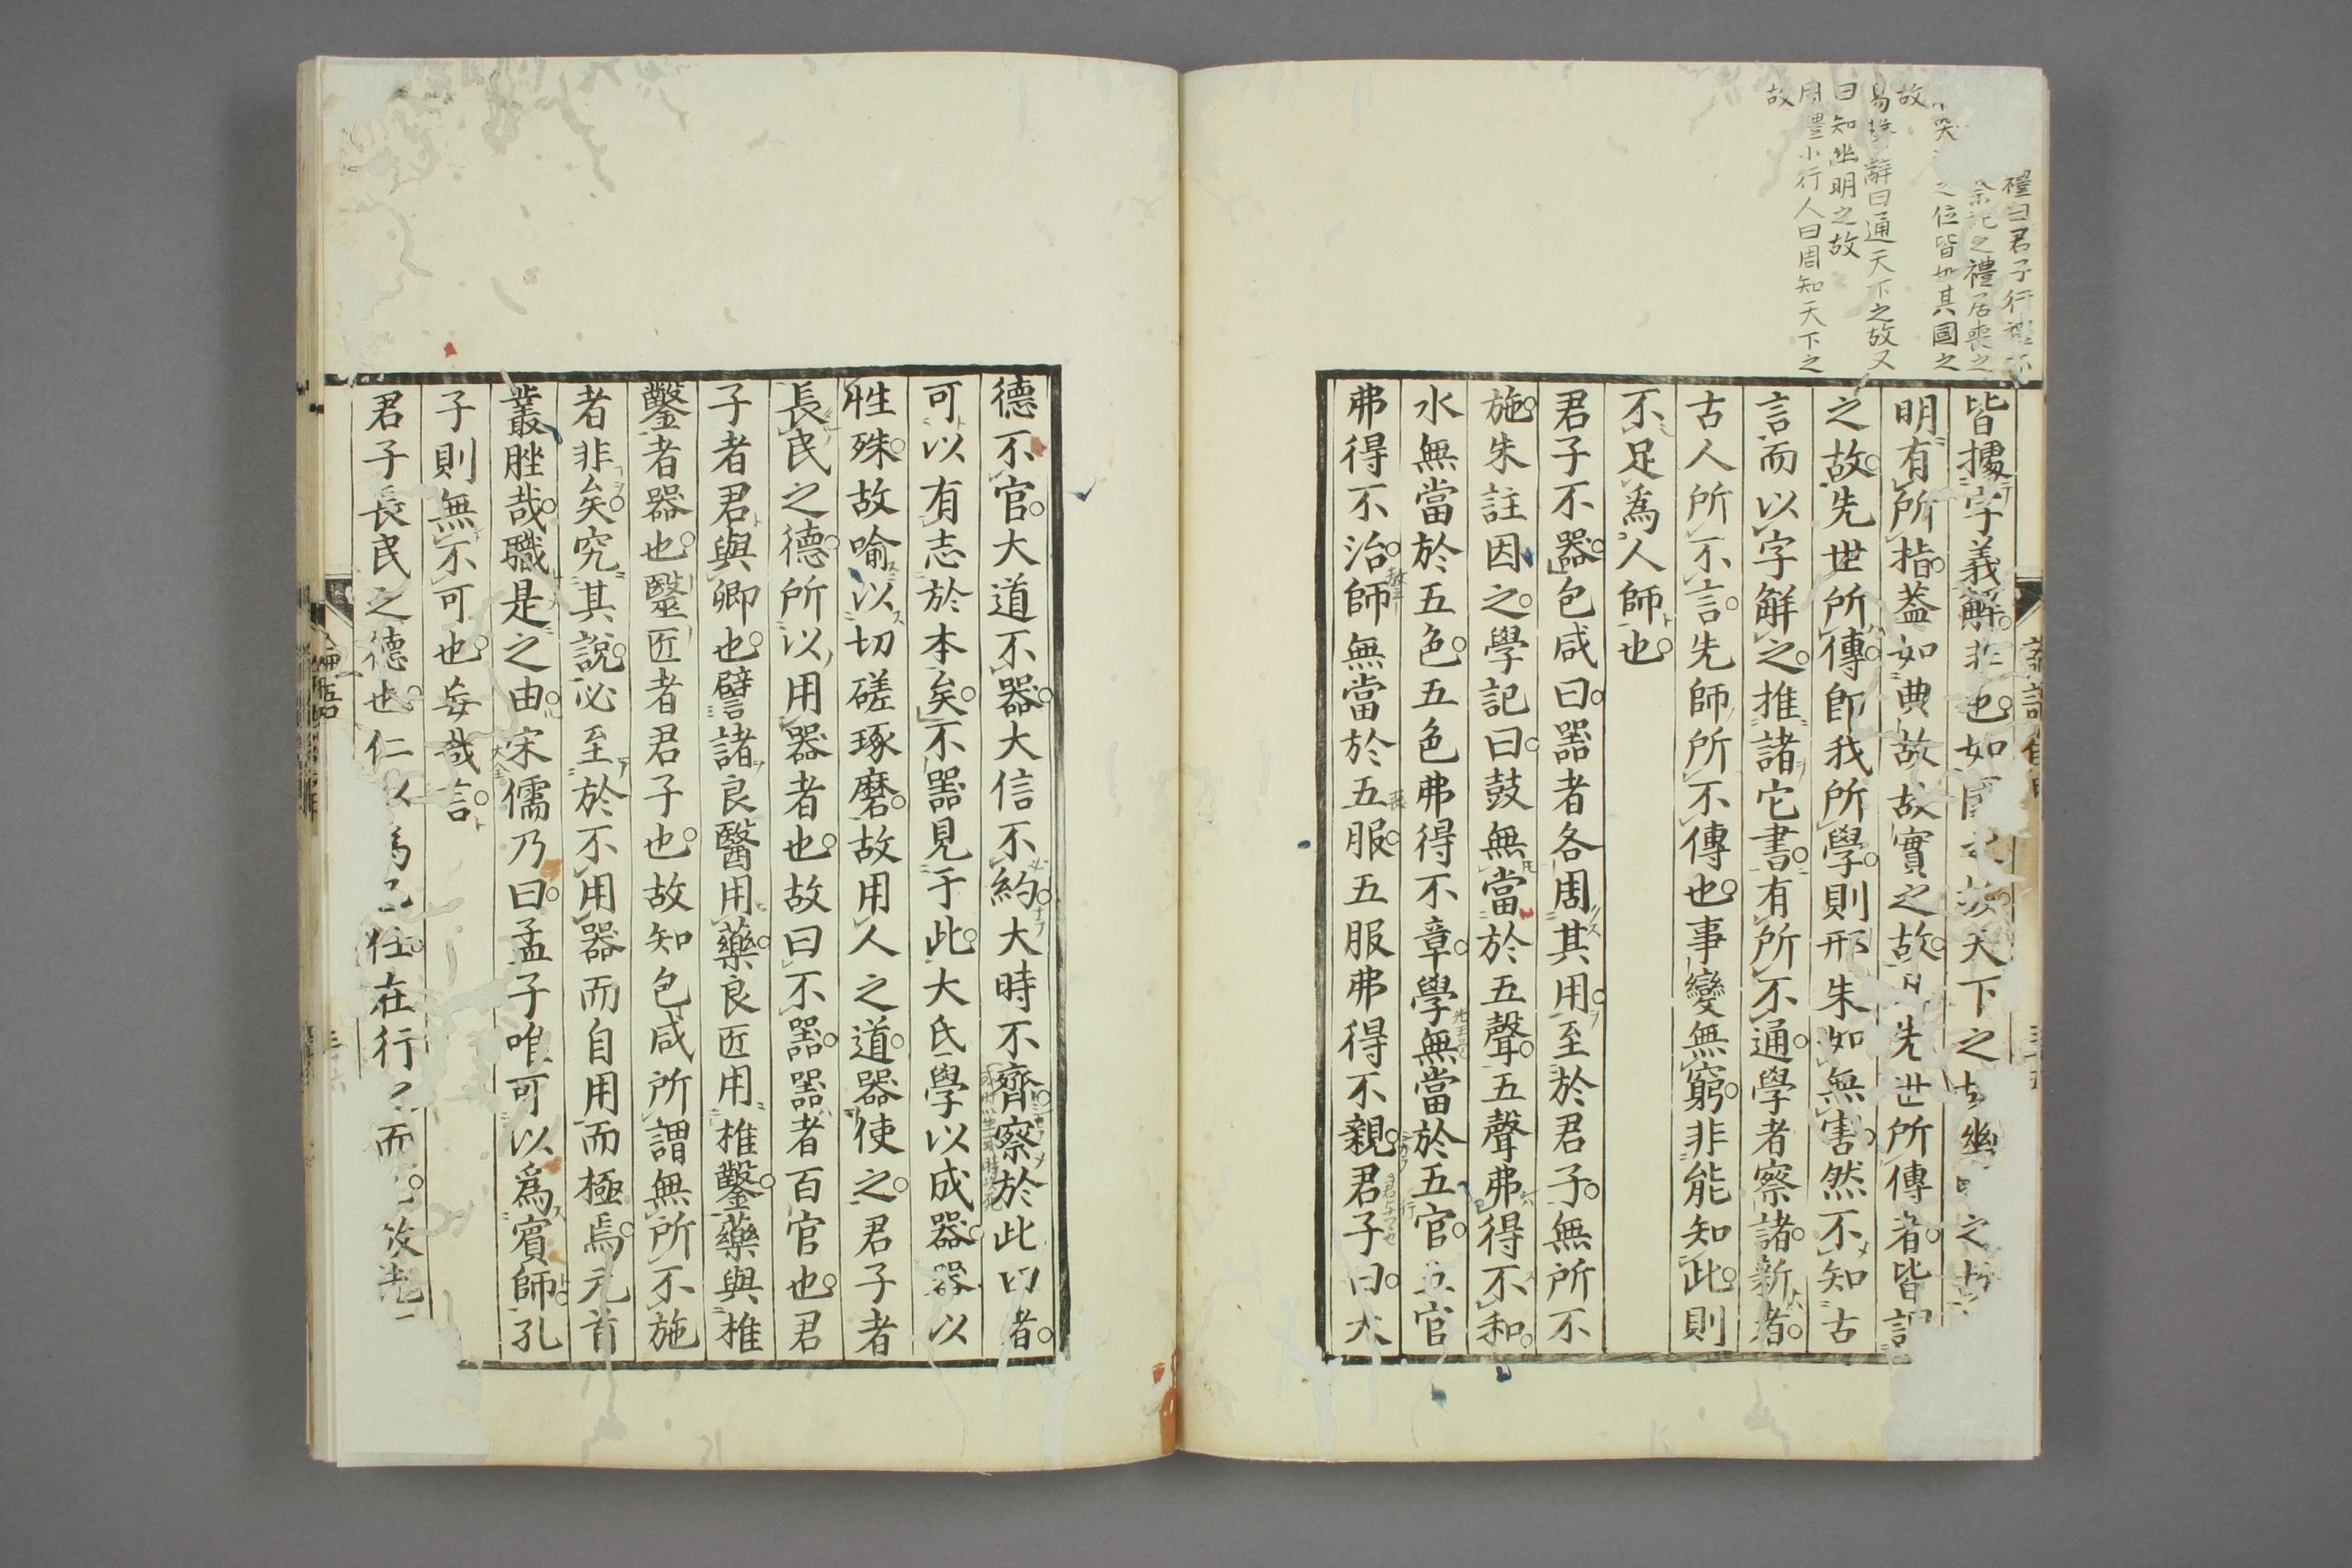 禮曰君子行禮不
之禮居喪之
哭 之位皆如其國之
故
易繫辭曰通天下之故又
曰知幽明之故
周禮小行人曰周知天下之
故
皆據字義解非也如國之故天下之故幽明之故
明有所指蓋如典故故實之故 先世所傳者皆謂
之故先世所傳卽我所學則邢朱如無害然不知古
言而以字解之推諸它書有所不通學者察諸新者
古人所不言先師所不傳也事變無窮非能知此則
不足爲人師也
君子不器包咸曰器者各周其用至於君子無所不
施朱註因之學記曰鼓無當於五聲五聲弗得不和
水無當於五色五色弗得不章學無當於五官五官
弗得不治師無當於五服五服弗得不親君子曰大
德不官大道不器大信不約大時不齊察於此四者
可以有志於本矣不器見于此大氐學以成器器以
性殊故喻以切磋琢磨故用人之道器使之君子者
長民之德所以用器者也故曰不器器者百官也君
子者君與卿也譬諸良醫用藥良匠用椎鑿藥與椎
鑿者器也醫匠者君子也故知包咸所謂無所不施
者非矣究其說必至於不用器而自用而極焉元首
叢脞哉職是之由宋儒乃曰孟子唯可以爲賓師孔
子則無不可也妄哉言
君子長民之德也仁以爲己任在行之而
論語